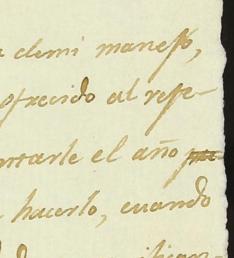 demi manejo,
ofrecido al refe-
ntarle el año
hacerlo, cuando